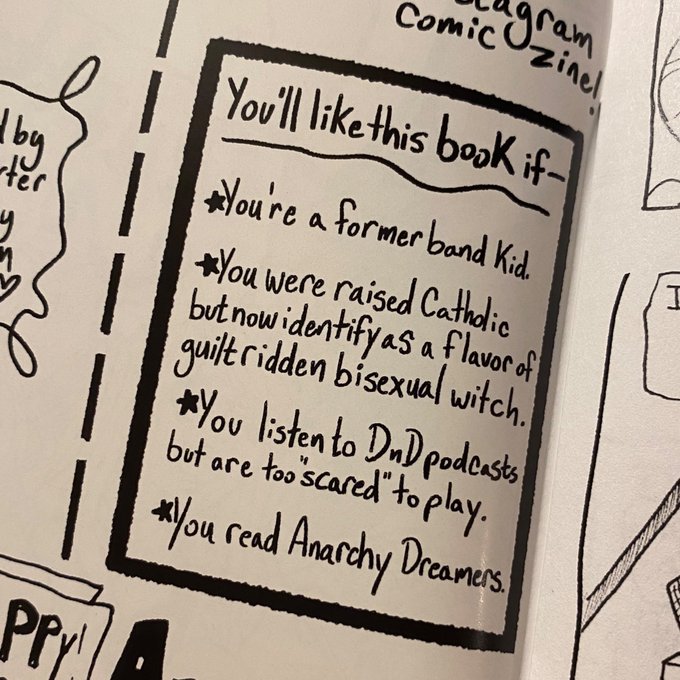 comic zine!
You'll like this book if-
*You're a former band kid.
*You were raised Catholic
but now identify as a flavor of
guilt ridden bisexual witch.
*You listen to DnD podcasts
but are too "scared" to play.
*You read Anarchy Dreamers.
by